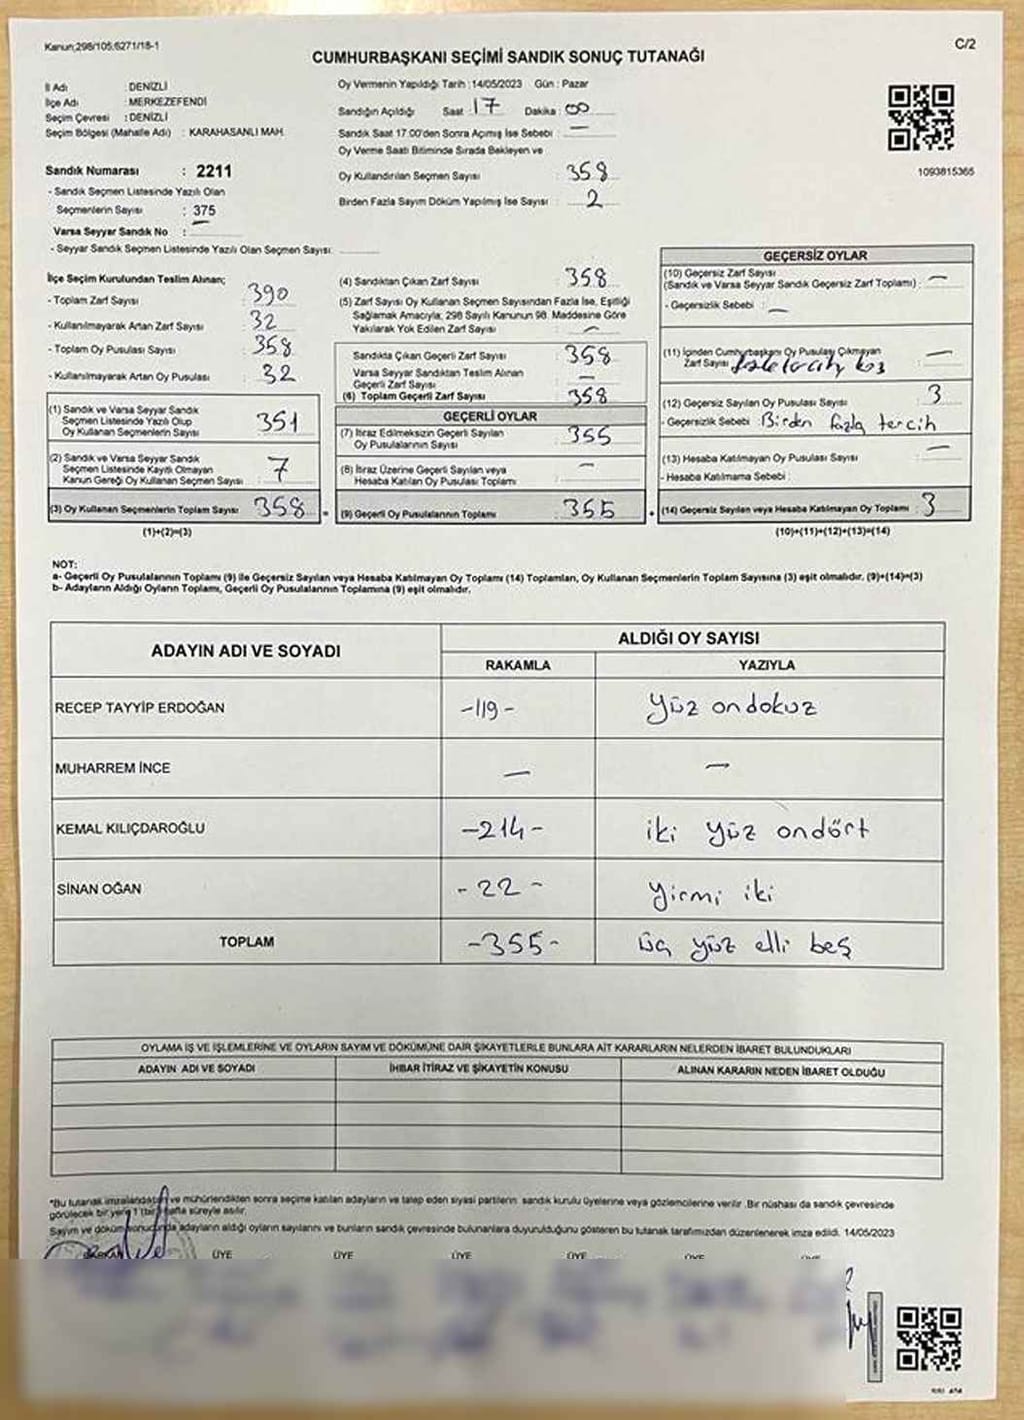 Kanun;298/105;6271/18-1
C/2
CUMHURBAŞKANI SEÇİMİ SANDIK SONUÇ TUTANAĞI
İl Adı : DENİZLİ
İlçe Adı : MERKEZEFENDİ
Seçim Çevresi : DENİZLİ
Seçim Bölgesi (Mahalle Adı) : KARAHASANLI MAH.
Sandık Numarası : 2211
- Sandık Seçmen Listesinde Yazılı Olan
Seçmenlerin Sayısı : 375
Varsa Seyyar Sandık No :
- Seyyar Sandık Seçmen Listesinde Yazılı Olan Seçmen Sayısı:
Oy Vermenin Yapıldığı Tarih : 14/05/2023 Gün : Pazar
Sandığın Açıldığı Saat : 17 Dakika : 00
Sandık Saat 17.00'den Sonra Açımış İse Sebebi : —
Oy Verme Saati Bitiminde Sırada Bekleyen ve
Oy Kullandırılan Seçmen Sayısı : 358
Birden Fazla Sayım Döküm Yapılmış İse Sayısı : 2
1093815365
İlçe Seçim Kurulundan Teslim Alınan;
- Toplam Zarf Sayısı : 390
- Kullanılmayarak Artan Zarf Sayısı : 32
- Toplam Oy Pusulası Sayısı : 358
- Kullanılmayarak Artan Oy Pusulası : 32
(1) Sandık ve Varsa Seyyar Sandık
Seçmen Listesinde Yazılı Olup
Oy Kullanan Seçmenlerin Sayısı : 351
(2) Sandık ve Varsa Seyyar Sandık
Seçmen Listesinde Kayıtlı Olmayan
Kanun Gereği Oy Kullanan Seçmen Sayısı : 7
(3) Oy Kullanan Seçmenlerin Toplam Sayısı : 358
(1)+(2)=(3)
(4) Sandıktan Çıkan Zarf Sayısı : 358
(5) Zarf Sayısı Oy Kullanan Seçmen Sayısından Fazla İse, Eşitliği
Sağlamak Amacıyla; 298 Sayılı Kanunun 98. Maddesine Göre
Yakılarak Yok Edilen Zarf Sayısı : —
Sandıkta Çıkan Geçerli Zarf Sayısı : 358
Varsa Seyyar Sandıktan Teslim Alınan
Geçerli Zarf Sayısı : —
(6) Toplam Geçerli Zarf Sayısı : 358
GEÇERLİ OYLAR
(7) İtiraz Edilmeksizin Geçerli Sayılan
Oy Pusulalarının Sayısı : 355
(8) İtiraz Üzerine Geçerli Sayılan veya
Hesaba Katılan Oy Pusulası Toplamı : —
(9) Geçerli Oy Pusulalarının Toplamı : 355
GEÇERSİZ OYLAR
(10) Geçersiz Zarf Sayısı
(Sandık ve Varsa Seyyar Sandık Geçersiz Zarf Toplamı) : —
- Geçersizlik Sebebi : —
(11) İçinden Cumhurbaşkanı Oy Pusulası Çıkmayan
Zarf Sayısı —
(12) Geçersiz Sayılan Oy Pusulası Sayısı : 3
- Geçersizlik Sebebi : Birden fazla tercih
(13) Hesaba Katılmayan Oy Pusulası Sayısı : —
- Hesaba Katılmama Sebebi :
(14) Geçersiz Sayılan veya Hesaba Katılmayan Oy Toplamı : 3
(10)+(11)+(12)+(13)=(14)
NOT:
a- Geçerli Oy Pusulalarının Toplamı (9) ile Geçersiz Sayılan veya Hesaba Katılmayan Oy Toplamı (14) Toplamları, Oy Kullanan Seçmenlerin Toplam Sayısına (3) eşit olmalıdır. (9)+(14)=(3)
b- Adayların Aldığı Oyların Toplamı, Geçerli Oy Pusulalarının Toplamına (9) eşit olmalıdır.
ADAYIN ADI VE SOYADI
ALDIĞI OY SAYISI
RAKAMLA YAZIYLA
RECEP TAYYİP ERDOĞAN -119- yüz ondokuz
MUHARREM İNCE — —
KEMAL KILIÇDAROĞLU -214- iki yüz ondört
SİNAN OĞAN -22- yirmi iki
TOPLAM -355- üç yüz elli beş
OYLAMA İŞ VE İŞLEMLERİNE VE OYLARIN SAYIM VE DÖKÜMÜNE DAİR ŞİKAYETLERLE BUNLARA AİT KARARLARIN NELERDEN İBARET BULUNDUKLARI
ADAYIN ADI VE SOYADI İHBAR İTİRAZ VE ŞİKAYETİN KONUSU ALINAN KARARIN NEDEN İBARET OLDUĞU
*Bu tutanak imzalandıktan ve mühürlendikten sonra seçime katılan adayların ve talep eden siyasi partilerin sandık kurulu üyelerine veya gözlemcilerine verilir. Bir nüshası da sandık çevresinde
görülecek bir yere 1 (bir) hafta süreyle asılır.
Sayım ve döküm sonucunda adayların aldığı oyların sayılarını ve bunların sandık çevresinde bulunanlara duyurulduğunu gösteren bu tutanak tarafımızdan düzenlenerek imza edildi. 14/05/2023
BAŞKAN ÜYE ÜYE ÜYE ÜYE ÜYE ÜYE